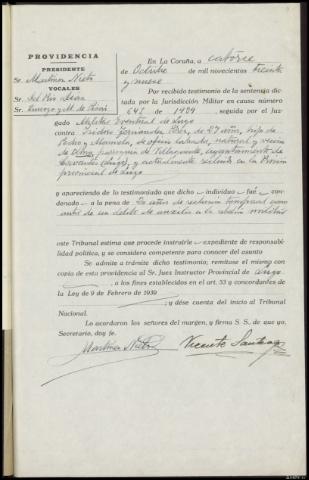 PROVIDENCIA
PRESIDENTE
Sr. Martínez Nieto
VOCALES
Sr. del Río
Sr.
En La Coruña, a catorce
de Octubre de mil novecientos treinta
y nueve
Por recibido testimonio de la sentencia dic-
tada por la Jurisdicción Militar en causa número
641 de 1937, seguida por el Juz-
gado Militar Eventual de Lugo
contra Isidoro Fernández de 27 años, hijo de
Pedro y Manuela, de oficio labrador, natural y vecino
de parroquia de ayuntamiento de
Cervantes (Lugo), y actualmente recluido en la Prisión
provincial de Lugo
y apareciendo del testimoniado que dicho individuo fué con-
denado a la pena de años de reclusión temporal como
autor de un delito de auxilio a la rebelión militar
este Tribunal estima que procede instruirle expediente de responsabi-
lidad política, y se considera competente para conocer del asunto
Se admite a trámite dicho testimonio; remítase el mismo con
copia de esta providencia al Sr. Juez Instructor Provincial de Lugo
, a los fines establecidos en el art. 53 y concordantes de
la Ley de 9 de Febrero de 1939
y dése cuenta del inicio al Tribunal
Nacional.
Lo acordaron los señores del margen, y firma S. S. de que yo,
Secretario, doy fe.
Martínez Nieto Vicente Santiago